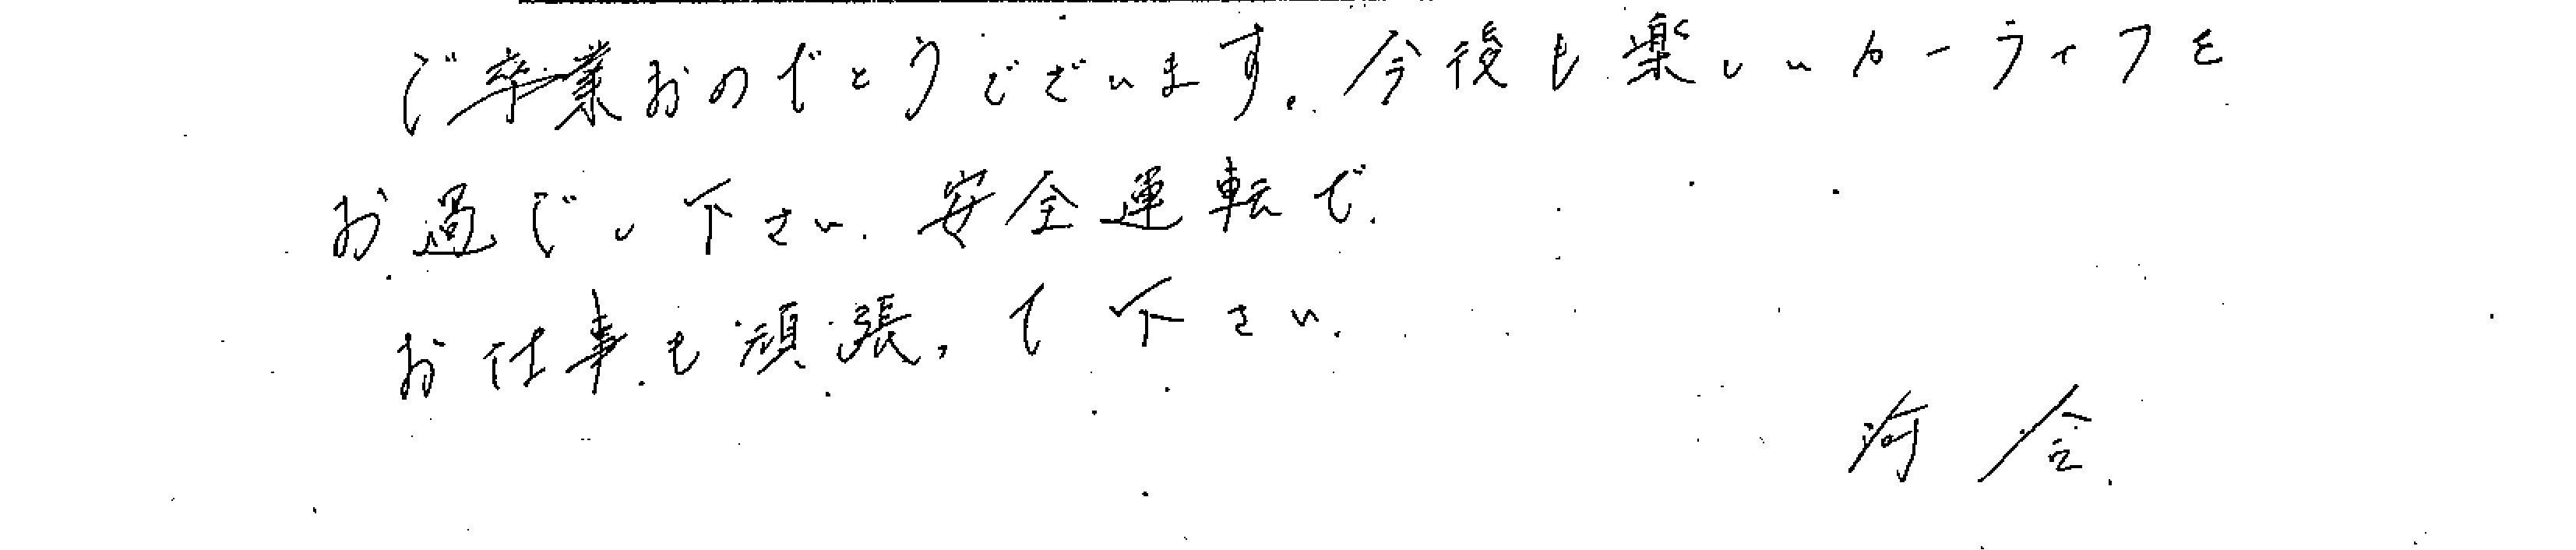 ご卒業おめでとうございます。今後も楽しいカーライフを
お過ごし下さい。安全運転で。
お仕事も頑張って下さい。
河合